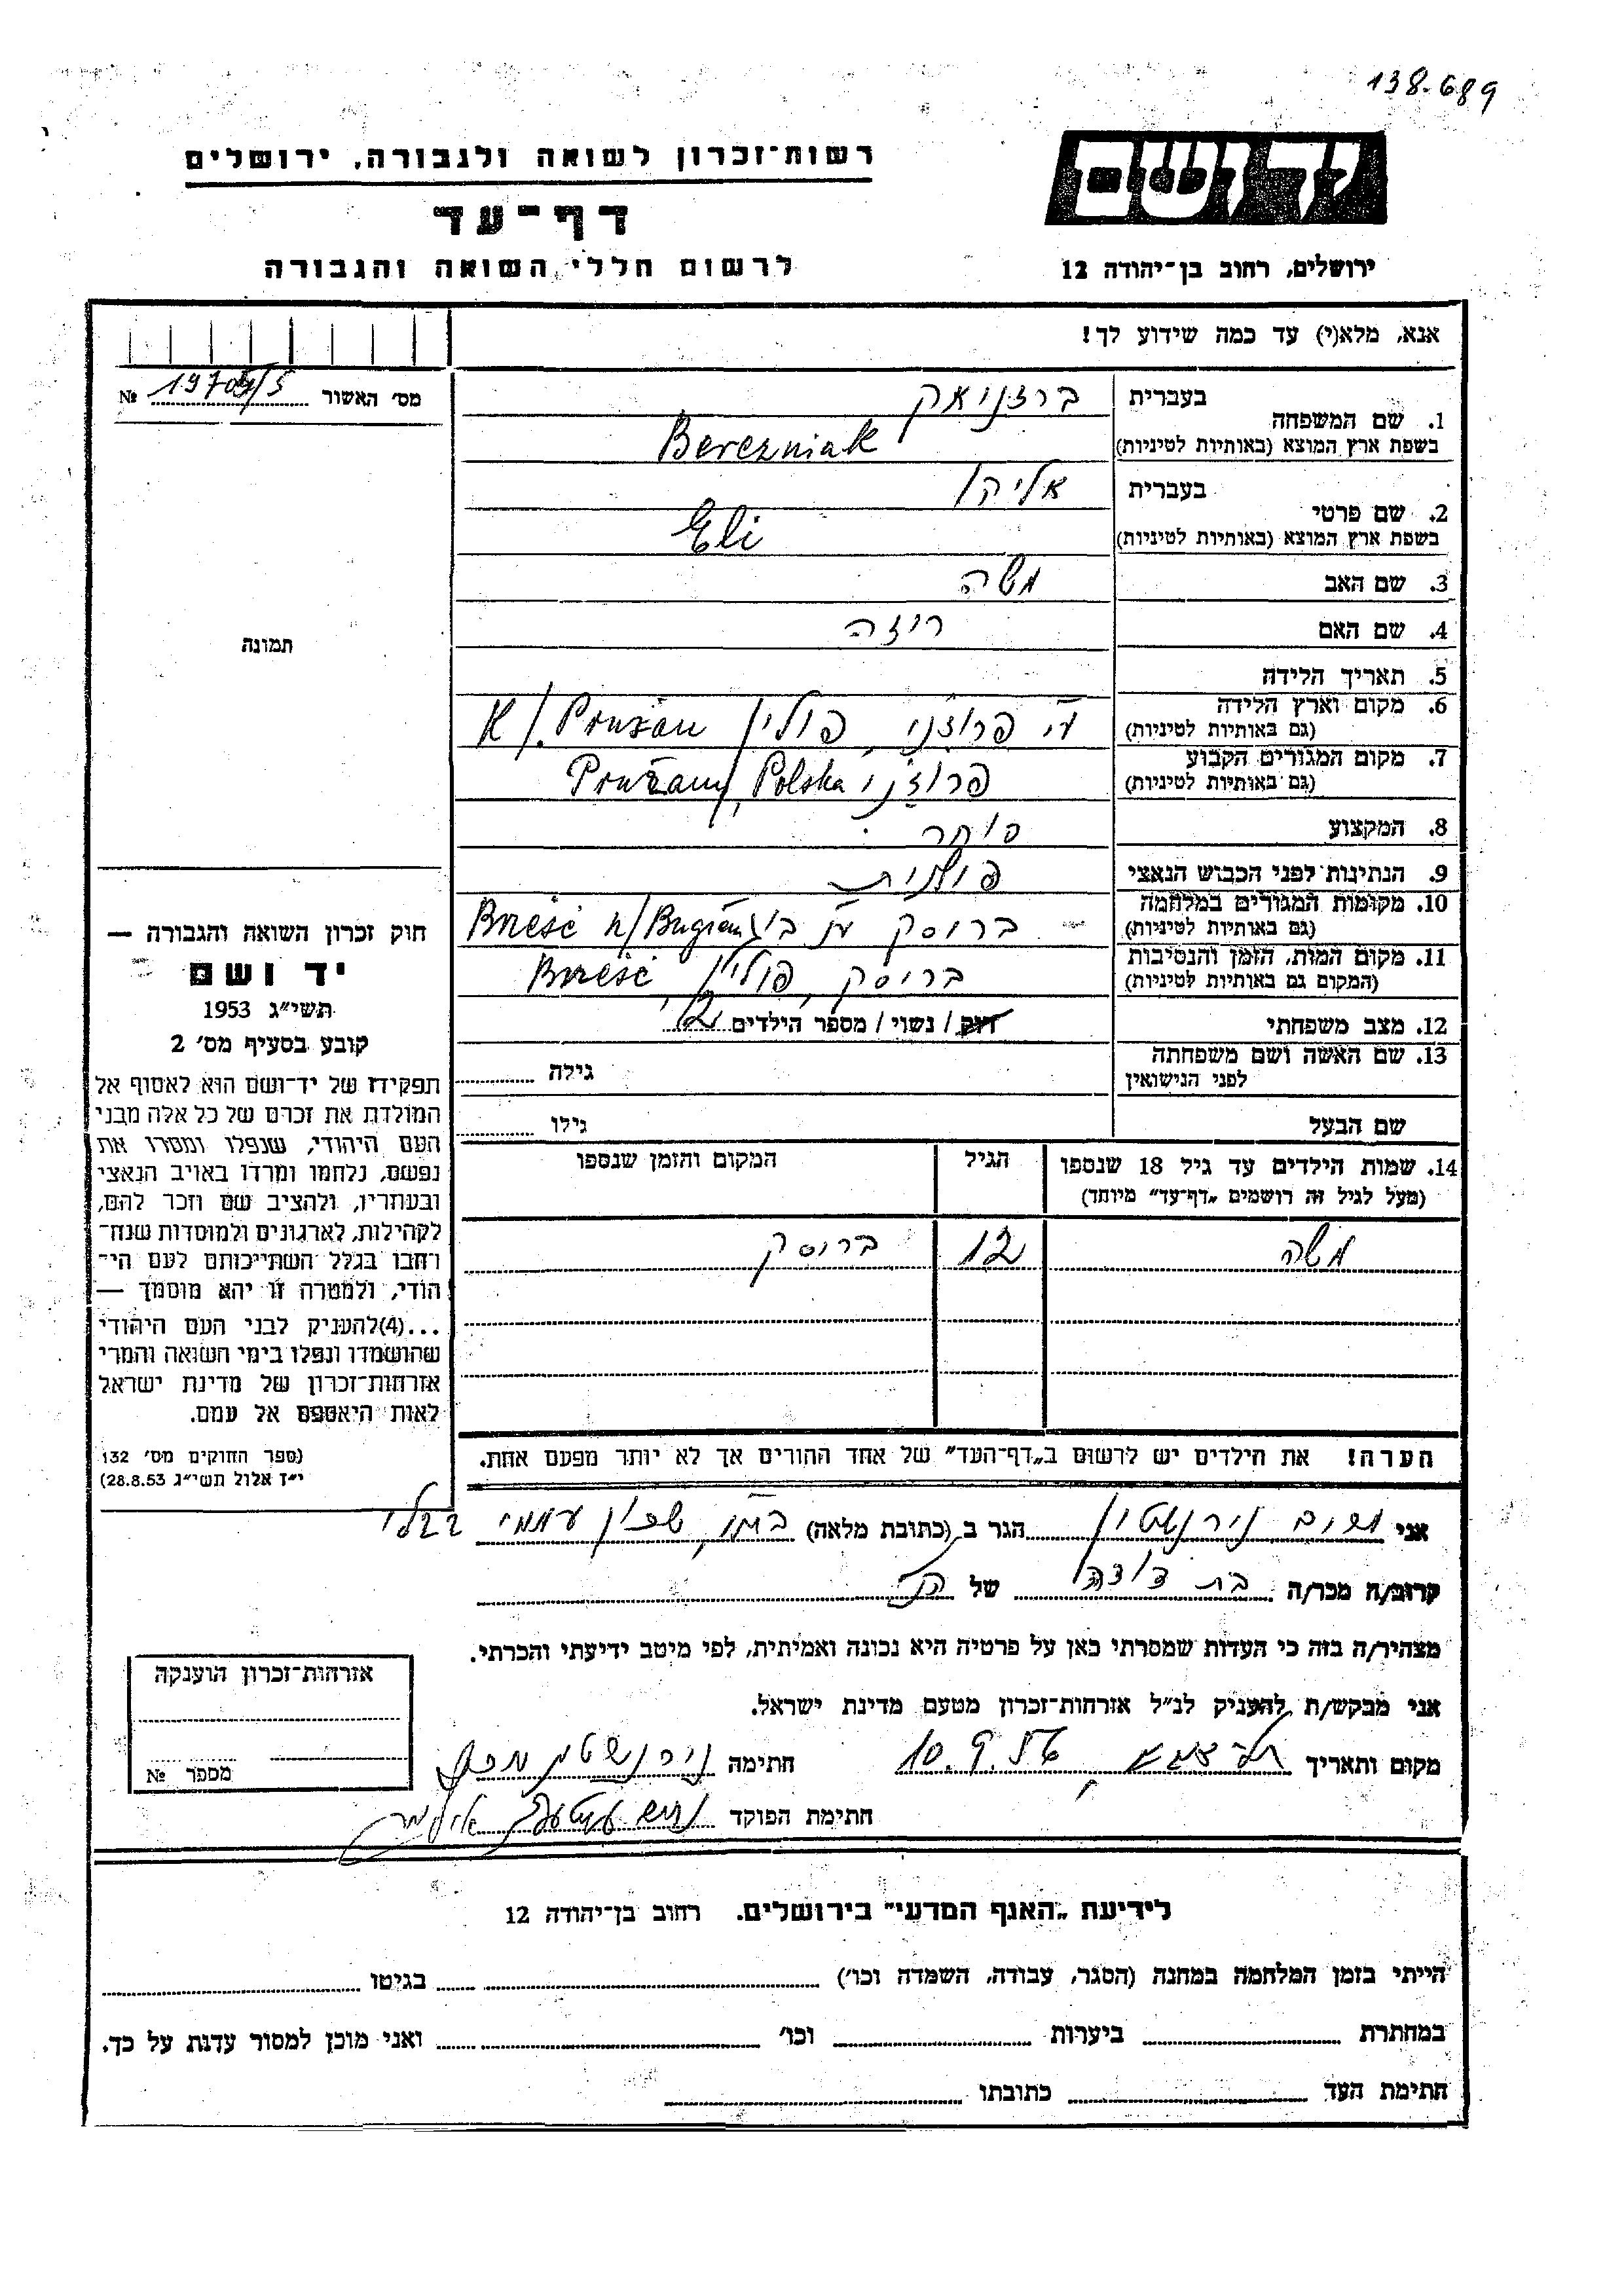 138-689
יד ושם
רשות־זכרון לשואה ולגבורה, ירושלים
דף־עד
לרשום חללי השואה והגבורה
ירושלים, רחוב בן־יהודה 12
אנא, מלא(י) עד כמה שידוע לך!
מס׳ האשור № 19705/5
בעברית ברזניאק
1. שם המשפחה
בשפת ארץ המוצא (באותיות לטיניות) Berezniak
בעברית
2. שם פרטי
בשפת ארץ המוצא (באותיות לטיניות) Eli
3. שם האב משה
4. שם האם ריזה
תמונה
5. תאריך הלידה
6. מקום וארץ הלידה ע"י פרוז'ני, פולין K/. Pružan
(גם באותיות לטיניות)
7. מקום המגורים הקבוע פרוז'ני Pružany, Polska
(גם באותיות לטיניות)
8. המקצוע סוחר
9. הנתינות לפני הכבוש הנאצי פולנית
10. מקומות המגורים במלחמה ברוסק Brześć n/Bugiem
(גם באותיות לטיניות)
11. מקום המות, הזמן והנסיבות ברוסק, פולין Brześć
(המקום גם באותיות לטיניות)
12. מצב משפחתי רוק / נשוי / מספר הילדים
13. שם האשה ושם משפחתה גילה
לפני הנישואין
שם הבעל גילו
14. שמות הילדים עד גיל 18 שנספו הגיל המקום והזמן שנספו
(מעל לגיל זה רושמים „דף־עד״ מיוחד)
משה 12 ברוסק
הערה! את הילדים יש לרשום ב„דף־העד״ של אחד ההורים אך לא יותר מפעם אחת.
חוק זכרון השואה והגבורה —
יד ושם
תשי״ג 1953
קובע בסעיף מס׳ 2
תפקידו של יד־ושם הוא לאסוף אל
המולדת את זכרם של כל אלה מבני
העם היהודי, שנפלו ומסרו את
נפשם, נלחמו ומרדו באויב הנאצי
ובעוזריו, ולהציב שם וזכר להם,
לקהילות, לארגונים ולמוסדות שנח־
רחבו בגלל השתייכותם לעם הי־
הודי, ולמטרה זו יהא מוסמך —
...(4)להעניק לבני העם היהודי
שהושמדו ונפלו בימי השואה והמרי
אזרחות־זכרון של מדינת ישראל
לאות היאספם אל עמם.
(ספר החוקים מס׳ 132
י״ז אלול תשי״ג 28.8.53)
אני הגר ב (כתובת מלאה) שכון עממי
קרוב/ה מכר/ה בת דודה של
מצהיר/ה בזה כי העדות שמסרתי כאן על פרטיה היא נכונה ואמיתית, לפי מיטב ידיעתי והכרתי.
אני מבקש/ת להעניק לנ״ל אזרחות־זכרון מטעם מדינת ישראל.
מקום ותאריך 10.9.56 חתימה
חתימת הפוקד
אזרחות־זכרון הוענקה
מספר №
לידיעת „האגף המדעי״ בירושלים. רחוב בן־יהודה 12
הייתי בזמן המלחמה במחנה (הסגר, עבודה, השמדה וכו׳) בגיטו
במחתרת ביערות וכו׳ ואני מוכן למסור עדות על כך.
חתימת העד כתובתו